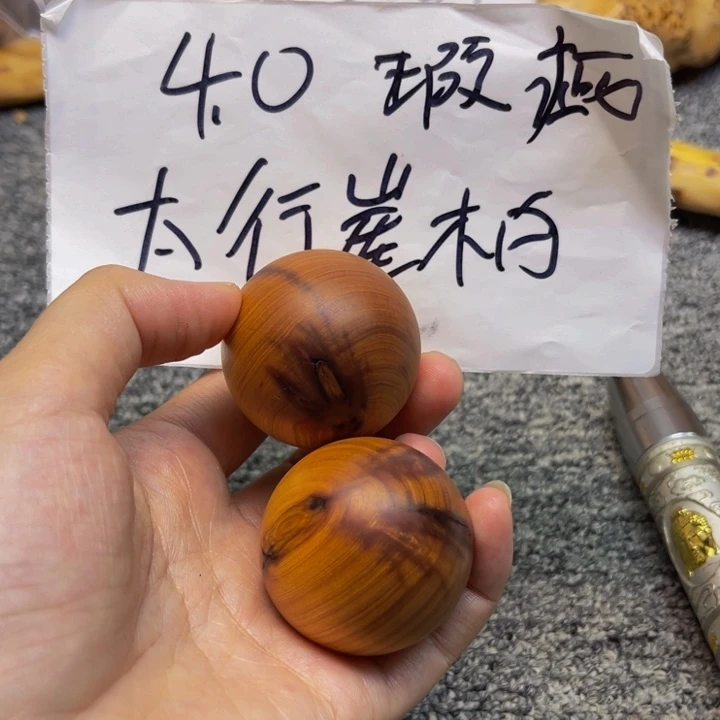 4.0 瑕疵
太行崖柏